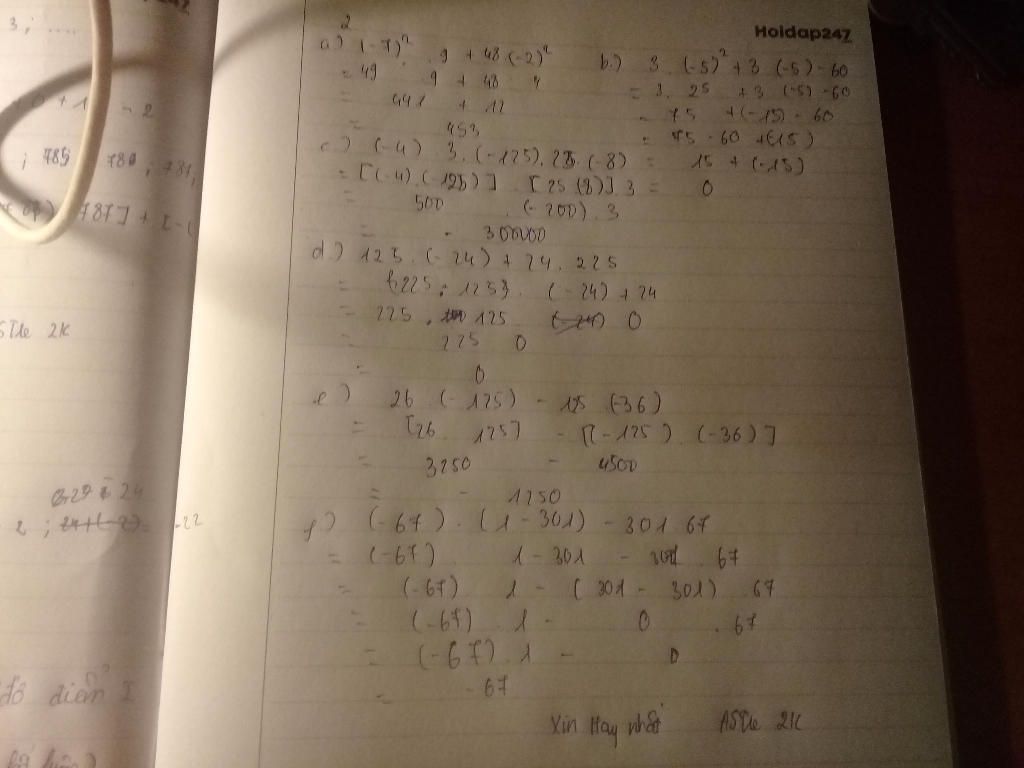 3; ....
+ 1 - 2
; 785 780 ; 781,
787] + [-(
sTLe 2K
2 ; = -22
đồ diễn I
Hoidap247
2
a) (-7)² . 9 + 48 (-2)²
= 49 9 + 48 : 4
= 441 + 12
= 453
b) 3 . (-5)² + 3 (-5) - 60
= 3. 25 + 3 (-5) - 60
= 75 + (-15) - 60
= 75 - 60 + (-15)
= 15 + (-15)
= 0
c) (-4) 3. (-125). 25. (-8)
= [(-4). (-125)] [25 (8)] 3
= 500 . (-200) . 3
= - 300000
d) 125. (-24) + 24. 225
= (225 : 125) . (-24) + 24
= 225 . 125 0
= 225 0
= 0
e) 26 . (-125) - 125 (36)
= [26 125] - [(-125) . (-36)]
= 3250 - 4500
= - 1250
f) (-67) . (1 - 301) - 301 67
= (-67) 1 - 301 - 301 . 67
= (-67) 1 - (301 - 301) . 67
= (-67) . 1 - 0 . 67
= (-67) . 1 - 0
= -67
Xin Hay nhất ASTLe 2K